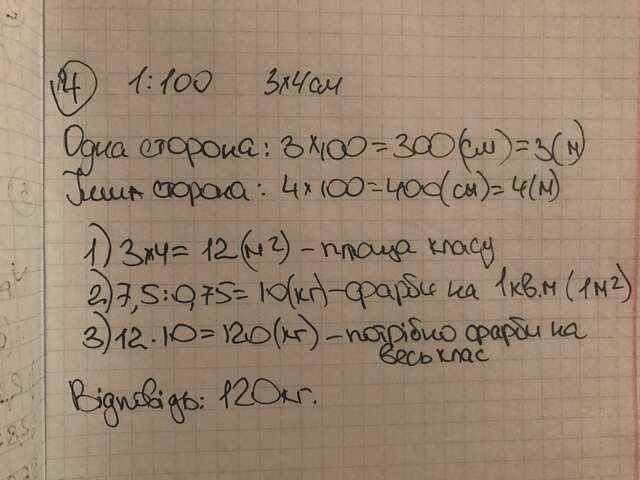 4 1:100 3×4см
Одна сторона: 3×100=300(см)=3(м)
Інша сторона: 4×100=400(см)=4(м)
1) 3×4= 12(м²) - площа класу
2) 7,5:0,75=10(кг)-фарби на 1кв.м (1м²)
3) 12·10=120(кг) - потрібно фарби на
весь клас
Відповідь: 120кг.